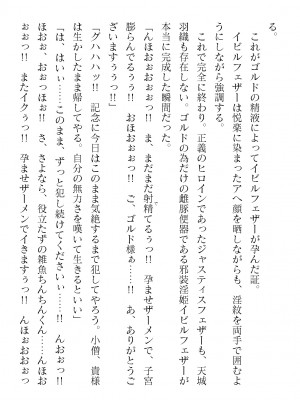 る。
　これがゴルドの精液によってイビルフェザーが孕んだ証。
　イビルフェザーは悦楽に染まったアヘ顔を晒しながらも、淫紋を両手で囲むよ
うにしながら強調する。
　これで完全に終わり。正義のヒロインであったジャスティスフェザーも、天城
羽織も存在しない。ゴルドの為だけの雌豚便器である邪装淫姫イビルフェザーが
本当に完成した瞬間だった。
「んほおおぉっっ!!　あ、まだまだ射精てるぅっ!!　孕ませザーメンで、子宮
膨らんでるぅぅっ!!　おほおぉぉっ!!　ご、ゴルド様ぁっ!!　あ、ありがとうご
ざいますぅぅっ!!」
「グハハハッ!!　記念に今日はこのまま気絶するまで犯してやろう。小僧、貴様
は生かしたまま帰してやる。自分の無力さを嘆いて生きるといい」
「は、はいぃっ……このまま、ずっと犯し続けてくださいぃ……!!　んおぉっ!!
ほおぉ、おぉっほぉっ!!　さ、さよなら、役立たずの雑魚ちんちんくん……んほお
おぉっ!!　まだイクぅっ!!　孕ませザーメンでイきますぅっ!!　んほおぉっ!!